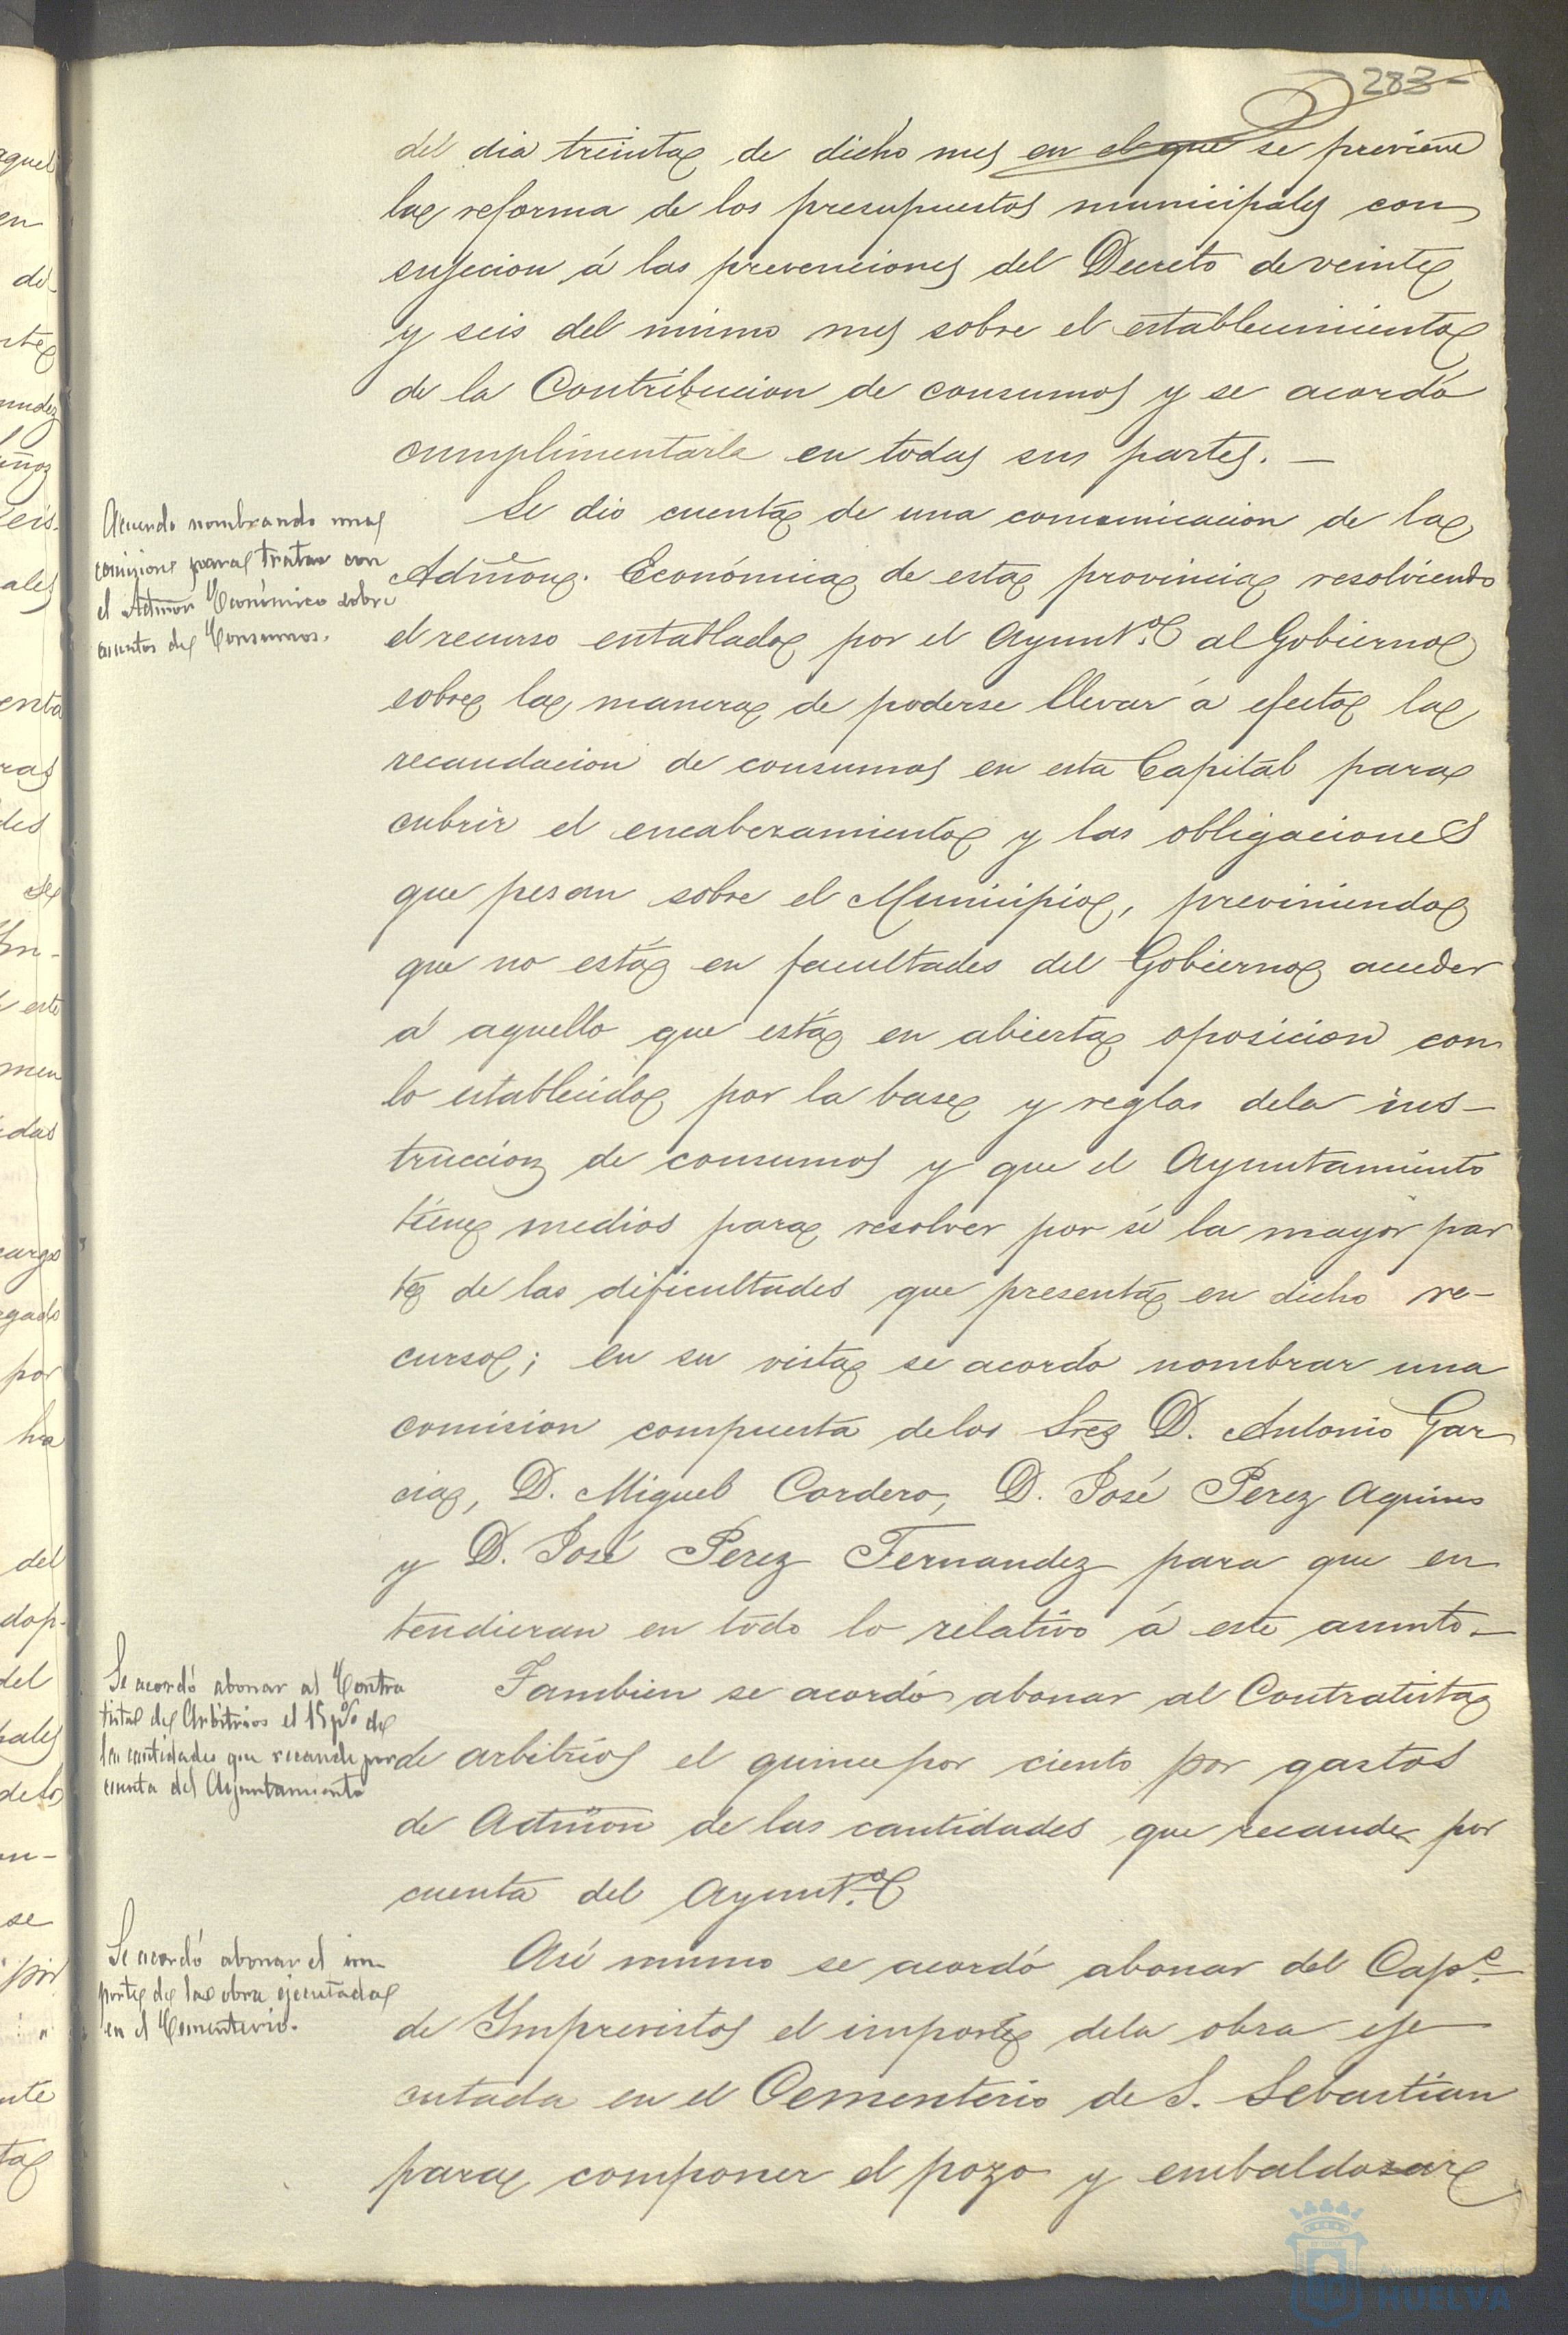 283
del dia treinta de dicho mes en el que se previene
la reforma de los presupuestos municipales con
sujecion á las prevenciones del Decreto de veinte
y seis del mismo mes sobre el establecimiento
de la Contribucion de consumos y se acordó
cumplimentarla en todas sus partes. —
Acuerdo nombrando una
comision para tratar con
el Admon Económico sobre
asuntos de Consumos.
Se dio cuenta de una comunicacion de la
Admon. Económica de esta provincia resolviendo
el recurso entablado por el Ayuntº. al Gobierno
sobre la manera de poderse llevar á efecto la
recaudacion de consumos en esta Capital para
cubrir el encabezamiento y las obligaciones
que pesan sobre el Municipio, previniendo
que no está en facultades del Gobierno acceder
á aquello que está en abierta oposicion con
lo establecido por la base y reglas dela ins-
truccion de consumos y que el Ayuntamiento
tiene medios para resolver por sí la mayor par
te de las dificultades que presenta en dicho re-
curso; en su vista se acordó nombrar una
comision compuesta delos Sres D. Antonio Gar
cia, D. Miguel Cordero, D. José Perez Aquino
y D. José Perez Fernandez para que en
tendieran en todo lo relativo á este asunto. —
Se acordó abonar al Contra
tista de Arbitrios el 15 p% de
las cantidades que recaude por
cuenta del Ayuntamiento
Tambien se acordó abonar al Contratista
de arbitrios el quince por ciento por gastos
de Admon de las cantidades que recaude por
cuenta del Ayuntº.
Se acordó abonar el im-
porte de la obra ejecutada
en el Cementerio.
Asi mismo se acordó abonar del Capº.
de Imprevistos el importe dela obra eje
cutada en el Cementerio de S. Sebastian
para componer el pozo y embaldozar
HUELVA